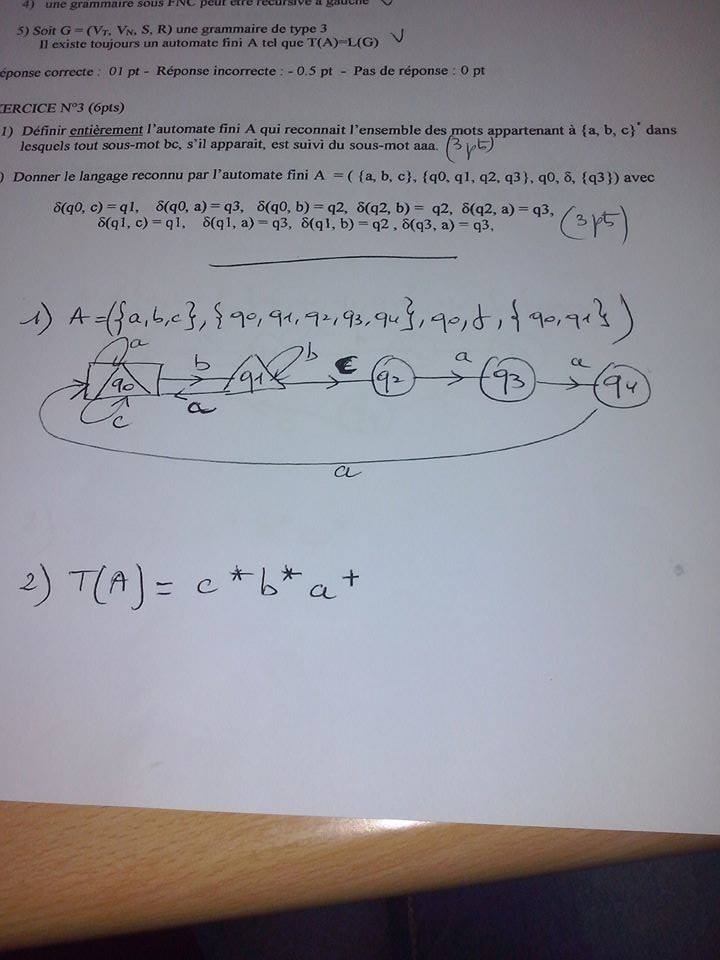 4) une grammaire sous FNC peut être récursive à gauche
5) Soit G = (VT, VN, S, R) une grammaire de type 3
Il existe toujours un automate fini A tel que T(A)=L(G)
éponse correcte : 01 pt - Réponse incorrecte : - 0.5 pt - Pas de réponse : 0 pt
ERCICE N°3 (6pts)
1) Définir entièrement l'automate fini A qui reconnait l'ensemble des mots appartenant à {a, b, c}* dans
lesquels tout sous-mot bc, s'il apparait, est suivi du sous-mot aaa. (3 pts)
) Donner le langage reconnu par l'automate fini A = ( {a, b, c}, {q0, q1, q2, q3}, q0, δ, {q3}) avec
δ(q0, c) = q1, δ(q0, a) = q3, δ(q0, b) = q2, δ(q2, b) = q2, δ(q2, a) = q3,
δ(q1, c) = q1, δ(q1, a) = q3, δ(q1, b) = q2 , δ(q3, a) = q3, (3 pts)
1) A=({a,b,c},{q0,q1,q2,q3,q4},q0,δ,{q0,q1})
a b b c a a
q0 q1 q2 q3 q4
c a
a
2) T(A) = c*b*a+